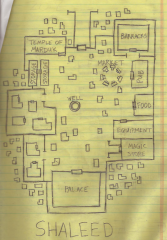 TEMPLE OF
MARDUK
BARRACKS
MARKET
WELL
FOOD
EQUIPMENT
MAGIC
STORE
PALACE
SHALEED